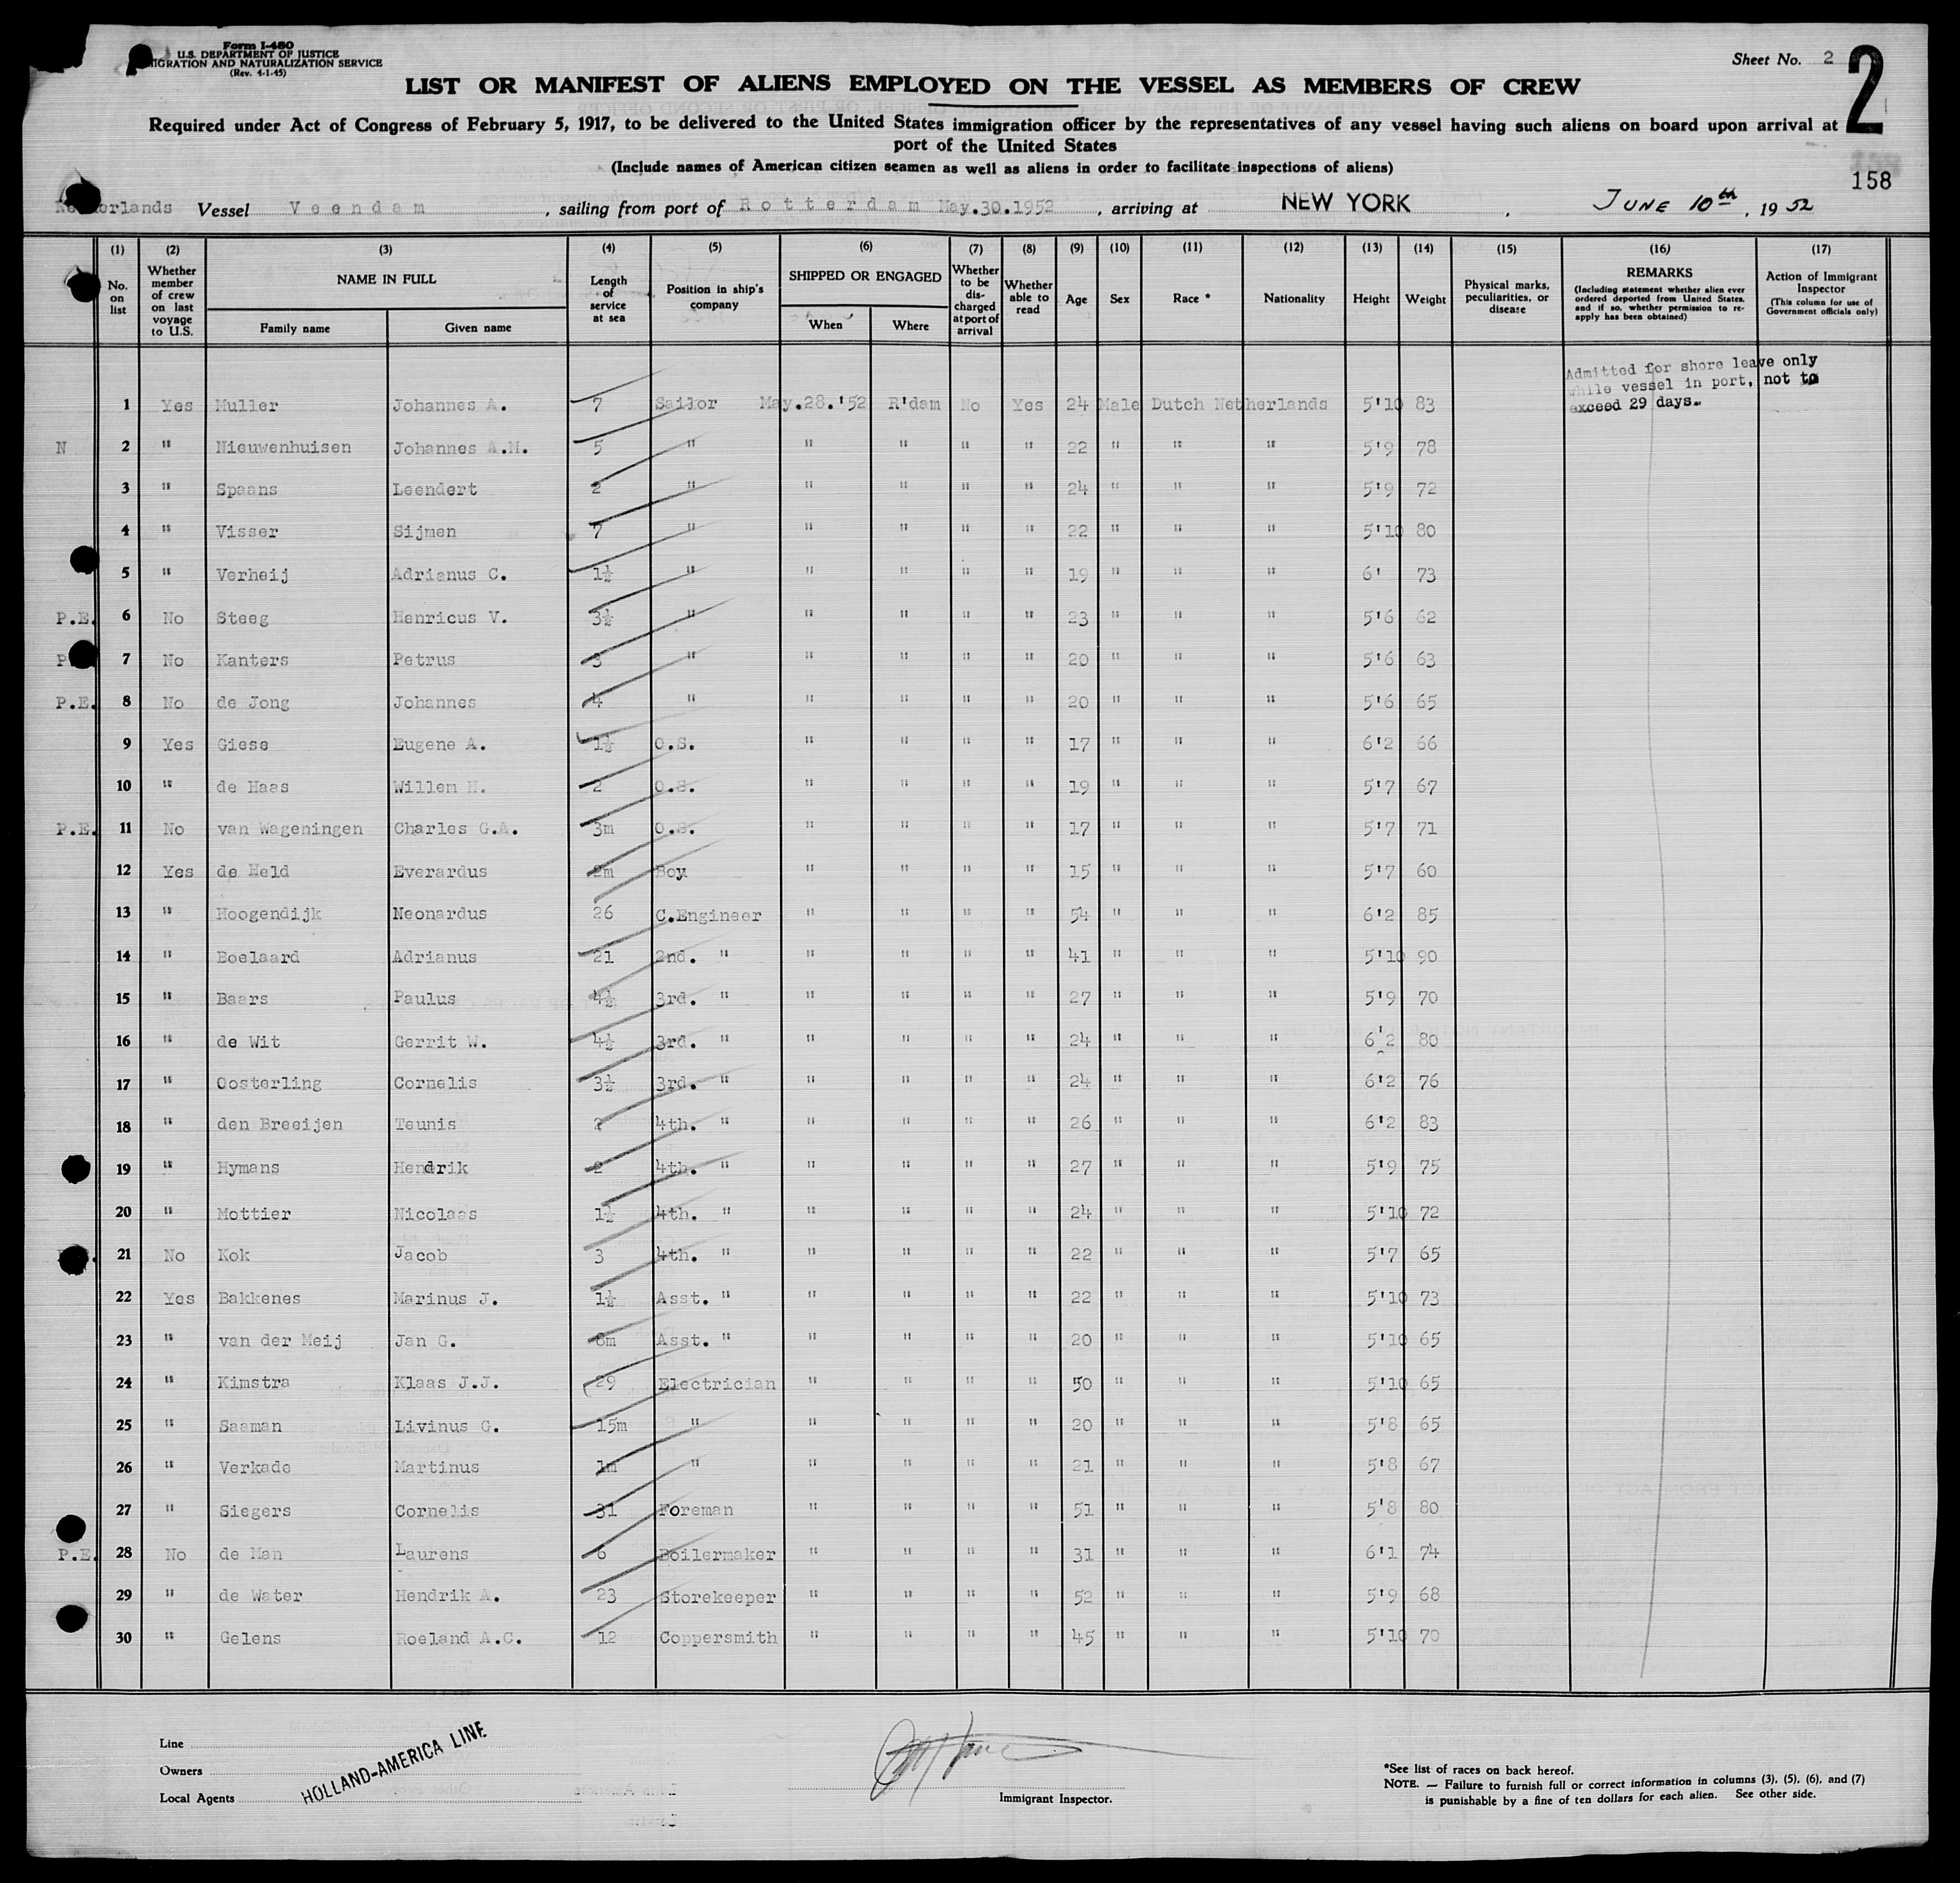 Form I-480
U.S. DEPARTMENT OF JUSTICE
IGRATION AND NATURALIZATION SERVICE
(Rev. 4-1-45)
Sheet No. 2
2
LIST OR MANIFEST OF ALIENS EMPLOYED ON THE VESSEL AS MEMBERS OF CREW
Required under Act of Congress of February 5, 1917, to be delivered to the United States immigration officer by the representatives of any vessel having such aliens on board upon arrival at
port of the United States
(Include names of American citizen seamen as well as aliens in order to facilitate inspections of aliens)
158
Netherlands Vessel Veendam, sailing from port of Rotterdam May.30.1952, arriving at NEW YORK, JUNE 10th, 1952
(1) (2) (3) (4) (5) (6) (7) (8) (9) (10) (11) (12) (13) (14) (15) (16) (17)
No. on list
Whether member of crew on last voyage to U.S.
NAME IN FULL
Family name Given name
Length of service at sea
Position in ship's company
SHIPPED OR ENGAGED
When Where
Whether to be discharged at port of arrival
Whether able to read
Age Sex Race * Nationality Height Weight
Physical marks, peculiarities, or disease
REMARKS
(Including statement whether alien ever ordered deported from United States, and if so, whether permission to re-apply has been obtained)
Action of Immigrant Inspector
(This column for use of Government officials only)
Admitted for shore leave only
while vessel in port, not to
exceed 29 days.
1 Yes Muller Johannes A. 7 Sailor May.28.'52 R'dam No Yes 24 Male Dutch Netherlands 5'10 83
N 2 " Nieuwenhuisen Johannes A.M. 5 " " " " " 22 " " " 5'9 78
3 " Spaans Leendert 2 " " " " " 24 " " " 5'9 72
4 " Visser Sijmen 7 " " " " " 22 " " " 5'10 80
5 " Verheij Adrianus C. 1½ " " " " " 19 " " " 6' 73
P.E. 6 No Steeg Henricus V. 3½ " " " " " 23 " " " 5'6 62
P 7 No Kanters Petrus 3 " " " " " 20 " " " 5'6 63
P.E. 8 No de Jong Johannes 4 " " " " " 20 " " " 5'6 65
9 Yes Giese Eugene A. 1½ O.S. " " " " 17 " " " 6'2 66
10 " de Haas Willem H. 2 O.S. " " " " 19 " " " 5'7 67
P.E. 11 No van Wageningen Charles G.A. 3m O.S. " " " " 17 " " " 5'7 71
12 Yes de Held Everardus 2m Boy " " " " 15 " " " 5'7 60
13 " Hoogendijk Neonardus 26 C.Engineer " " " " 54 " " " 6'2 85
14 " Boelaard Adrianus 21 2nd. " " " " " 41 " " " 5'10 90
15 " Baars Paulus 4½ 3rd. " " " " " 27 " " " 5'9 70
16 " de Wit Gerrit W. 4½ 3rd. " " " " " 24 " " " 6'2 80
17 " Oosterling Cornelis 3½ 3rd. " " " " " 24 " " " 6'2 76
18 " den Breeijen Teunis 2 4th. " " " " " 26 " " " 6'2 83
19 " Hymans Hendrik 2 4th. " " " " " 27 " " " 5'9 75
20 " Mottier Nicolaas 1½ 4th. " " " " " 24 " " " 5'10 72
21 No Kok Jacob 3 4th. " " " " " 22 " " " 5'7 65
22 Yes Bakkenes Marinus J. 1½ Asst. " " " " " 22 " " " 5'10 73
23 " van der Meij Jan G. 8m Asst. " " " " " 20 " " " 5'10 65
24 " Kimstra Klaas J.J. 29 Electrician " " " " 50 " " " 5'10 65
25 " Saaman Livinus G. 15m " " " " " 20 " " " 5'8 65
26 " Verkade Martinus 1m " " " " " 21 " " " 5'8 67
27 " Siegers Cornelis 31 Foreman " " " " 51 " " " 5'8 80
P.E. 28 No de Man Laurens 6 Boilermaker " " " " 31 " " " 6'1 74
29 " de Water Hendrik A. 23 Storekeeper " " " " 52 " " " 5'9 68
30 " Gelens Roeland A.C. 12 Coppersmith " " " " 45 " " " 5'10 70
Line
Owners
Local Agents
HOLLAND-AMERICA LINE
Immigrant Inspector.
*See list of races on back hereof.
NOTE. — Failure to furnish full or correct information in columns (3), (5), (6), and (7)
is punishable by a fine of ten dollars for each alien. See other side.